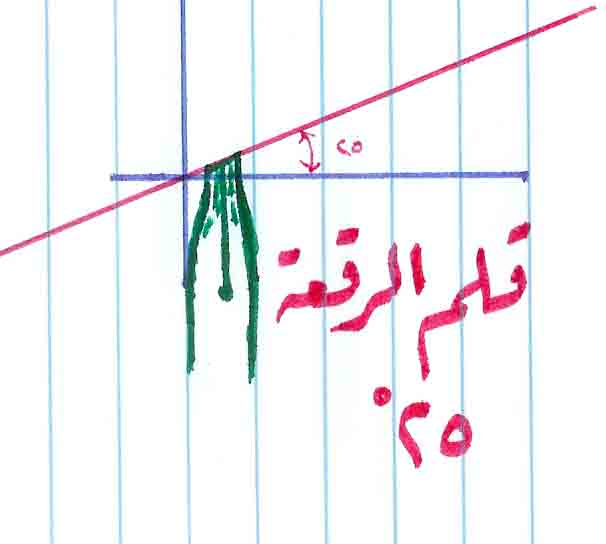 ٢٥
قلم الرقعة
٢٥°